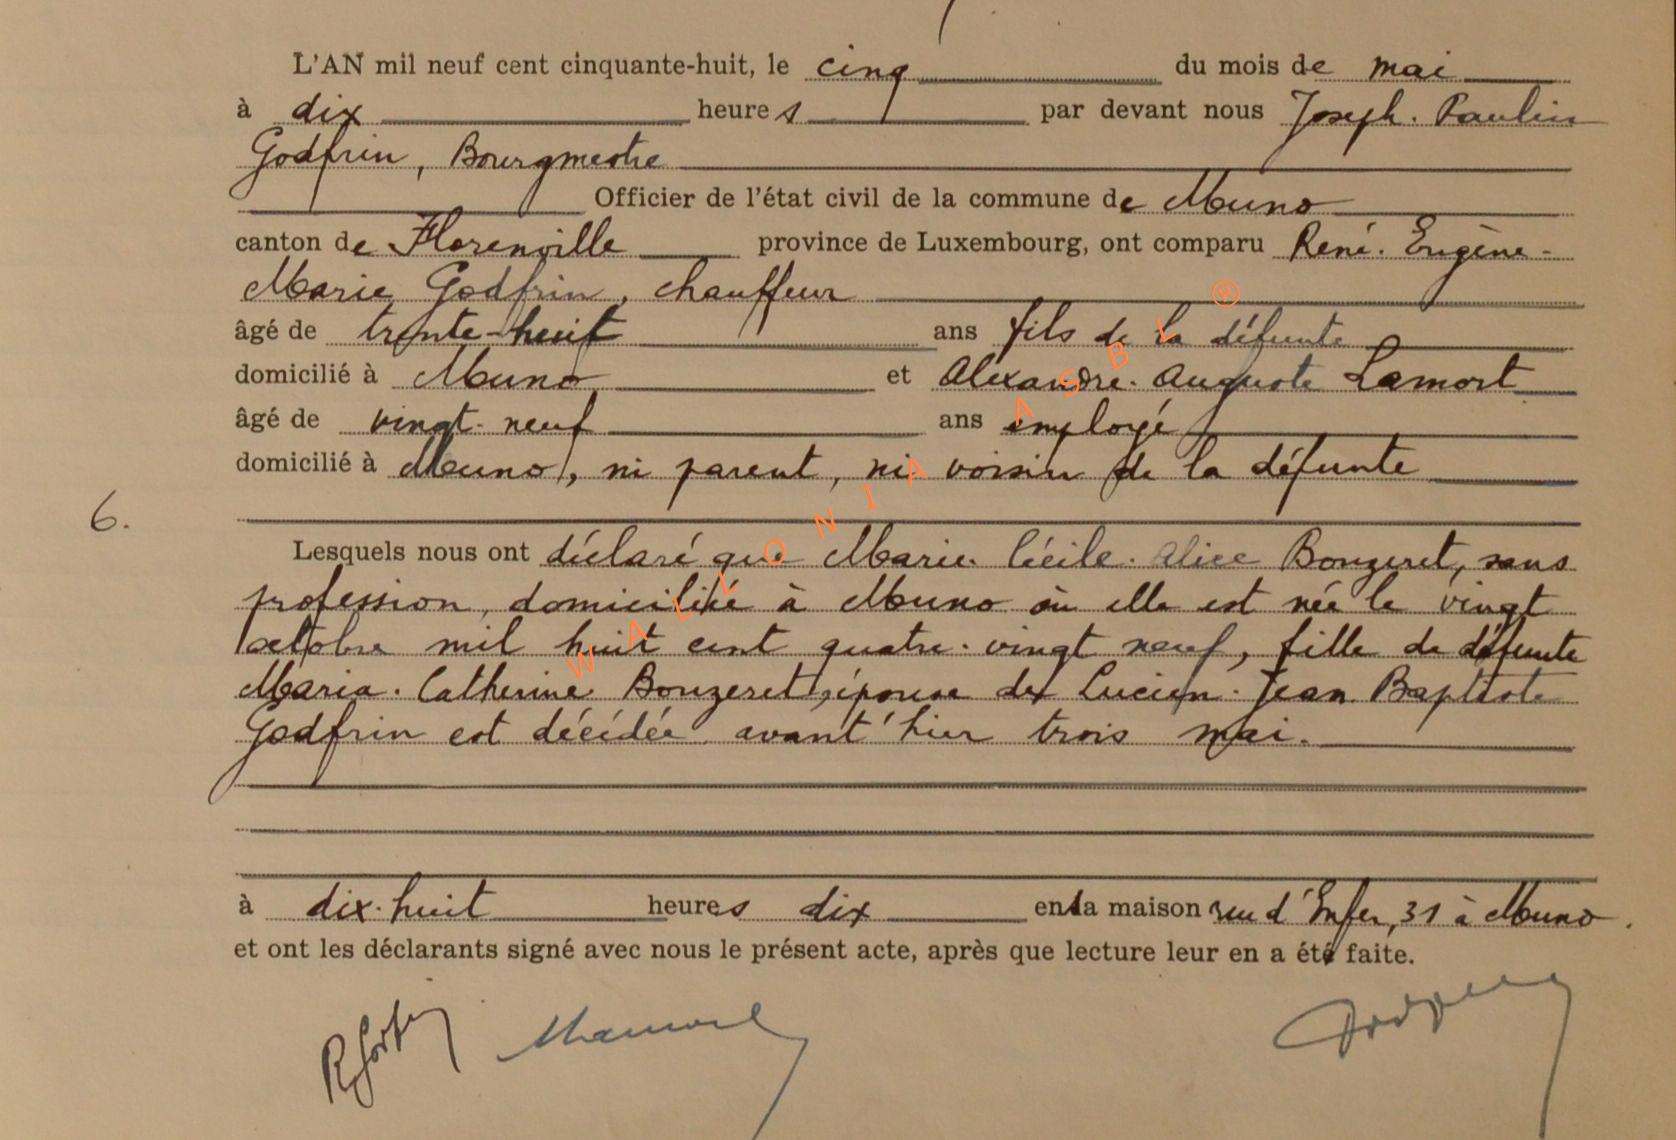 L'AN mil neuf cent cinquante-huit, le cinq du mois de mai
à dix heures par devant nous Joseph. Paulin
Godfrin, Bourgmestre
Officier de l'état civil de la commune de Muno
canton de Florenville province de Luxembourg, ont comparu René. Eugène-
Marie Godfrin, chauffeur
âgé de trente-huit ans fils de la défunte
domicilié à Muno et Alexandre. Auguste Lamort
âgé de vingt-neuf ans employé
domicilié à Muno, ni parent, ni voisin de la défunte
6.
Lesquels nous ont déclaré que Marie. Cécile. Alice Bouzeret, sans
profession, domiciliée à Muno où elle est née le vingt
octobre mil huit cent quatre-vingt neuf, fille de défunte
Maria. Catherine Bouzeret, épouse de Lucien. Jean Baptiste
Godfrin est décédée avant'hier trois mai.
à dix-huit heures dix en la maison rue d'Enfer, 31 à Muno.
et ont les déclarants signé avec nous le présent acte, après que lecture leur en a été faite.
WALLONIA ASBL ®